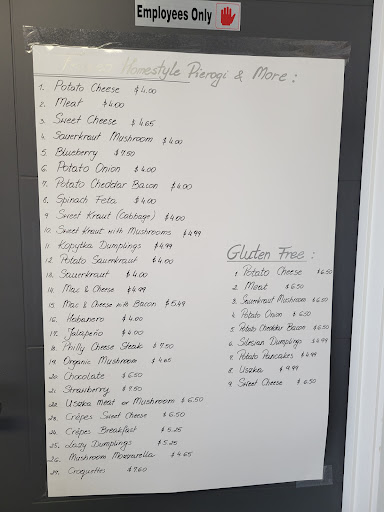 Employees Only
Homestyle Pierogi & More :
1. Potato Cheese $4.00
2. Meat $4.00
3. Sweet Cheese $4.65
4. Sauerkraut Mushroom $4.00
5. Blueberry $7.50
6. Potato Onion $4.00
7. Potato Cheddar Bacon $4.00
8. Spinach Feta $4.00
9. Sweet Kraut (Cabbage) $4.00
10. Sweet Kraut with Mushrooms $4.99
11. Kopytka Dumplings $4.99
12. Potato Sauerkraut $4.00
13. Sauerkraut $4.00
14. Mac & Cheese $4.99
15. Mac & Cheese with Bacon $5.49
16. Habanero $4.00
17. Jalapeño $4.00
18. Philly Cheese Steak $7.50
19. Organic Mushroom $4.65
20. Chocolate $6.50
21. Strawberry $7.50
22. Uszka meat or Mushroom $6.50
23. Crêpes Sweet Cheese $6.50
24. Crêpes Breakfast $5.25
25. Lazy Dumplings $5.25
26. Mushroom Mozzarella $4.65
27. Croquettes $7.60
Gluten Free :
1. Potato Cheese $6.50
2. Meat $6.50
3. Sauerkraut Mushroom $6.50
4. Potato Onion $6.50
5. Potato Cheddar Bacon $6.50
6. Silesian Dumplings $4.99
7. Potato Pancakes $4.99
8. Uszka $9.99
9. Sweet Cheese $6.50